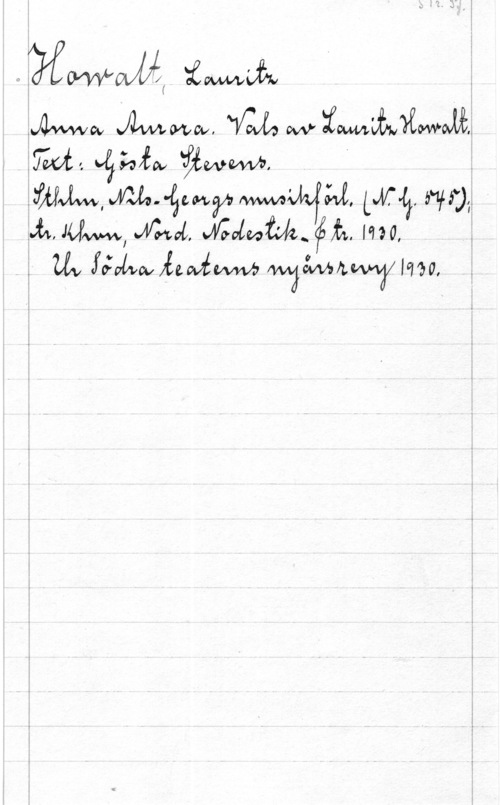 Howalt, Lauritz
Anna Aurora. Vals av Lauritz Howalt.
Text: Gösta Stevens.
Sthlm, Nils-Georgs musikförl. (N. G. 545);
tr. Khvn, Nord. Nodestik- & tr. 1930.
Ur Södra teaterns nyårsrevy 1930.